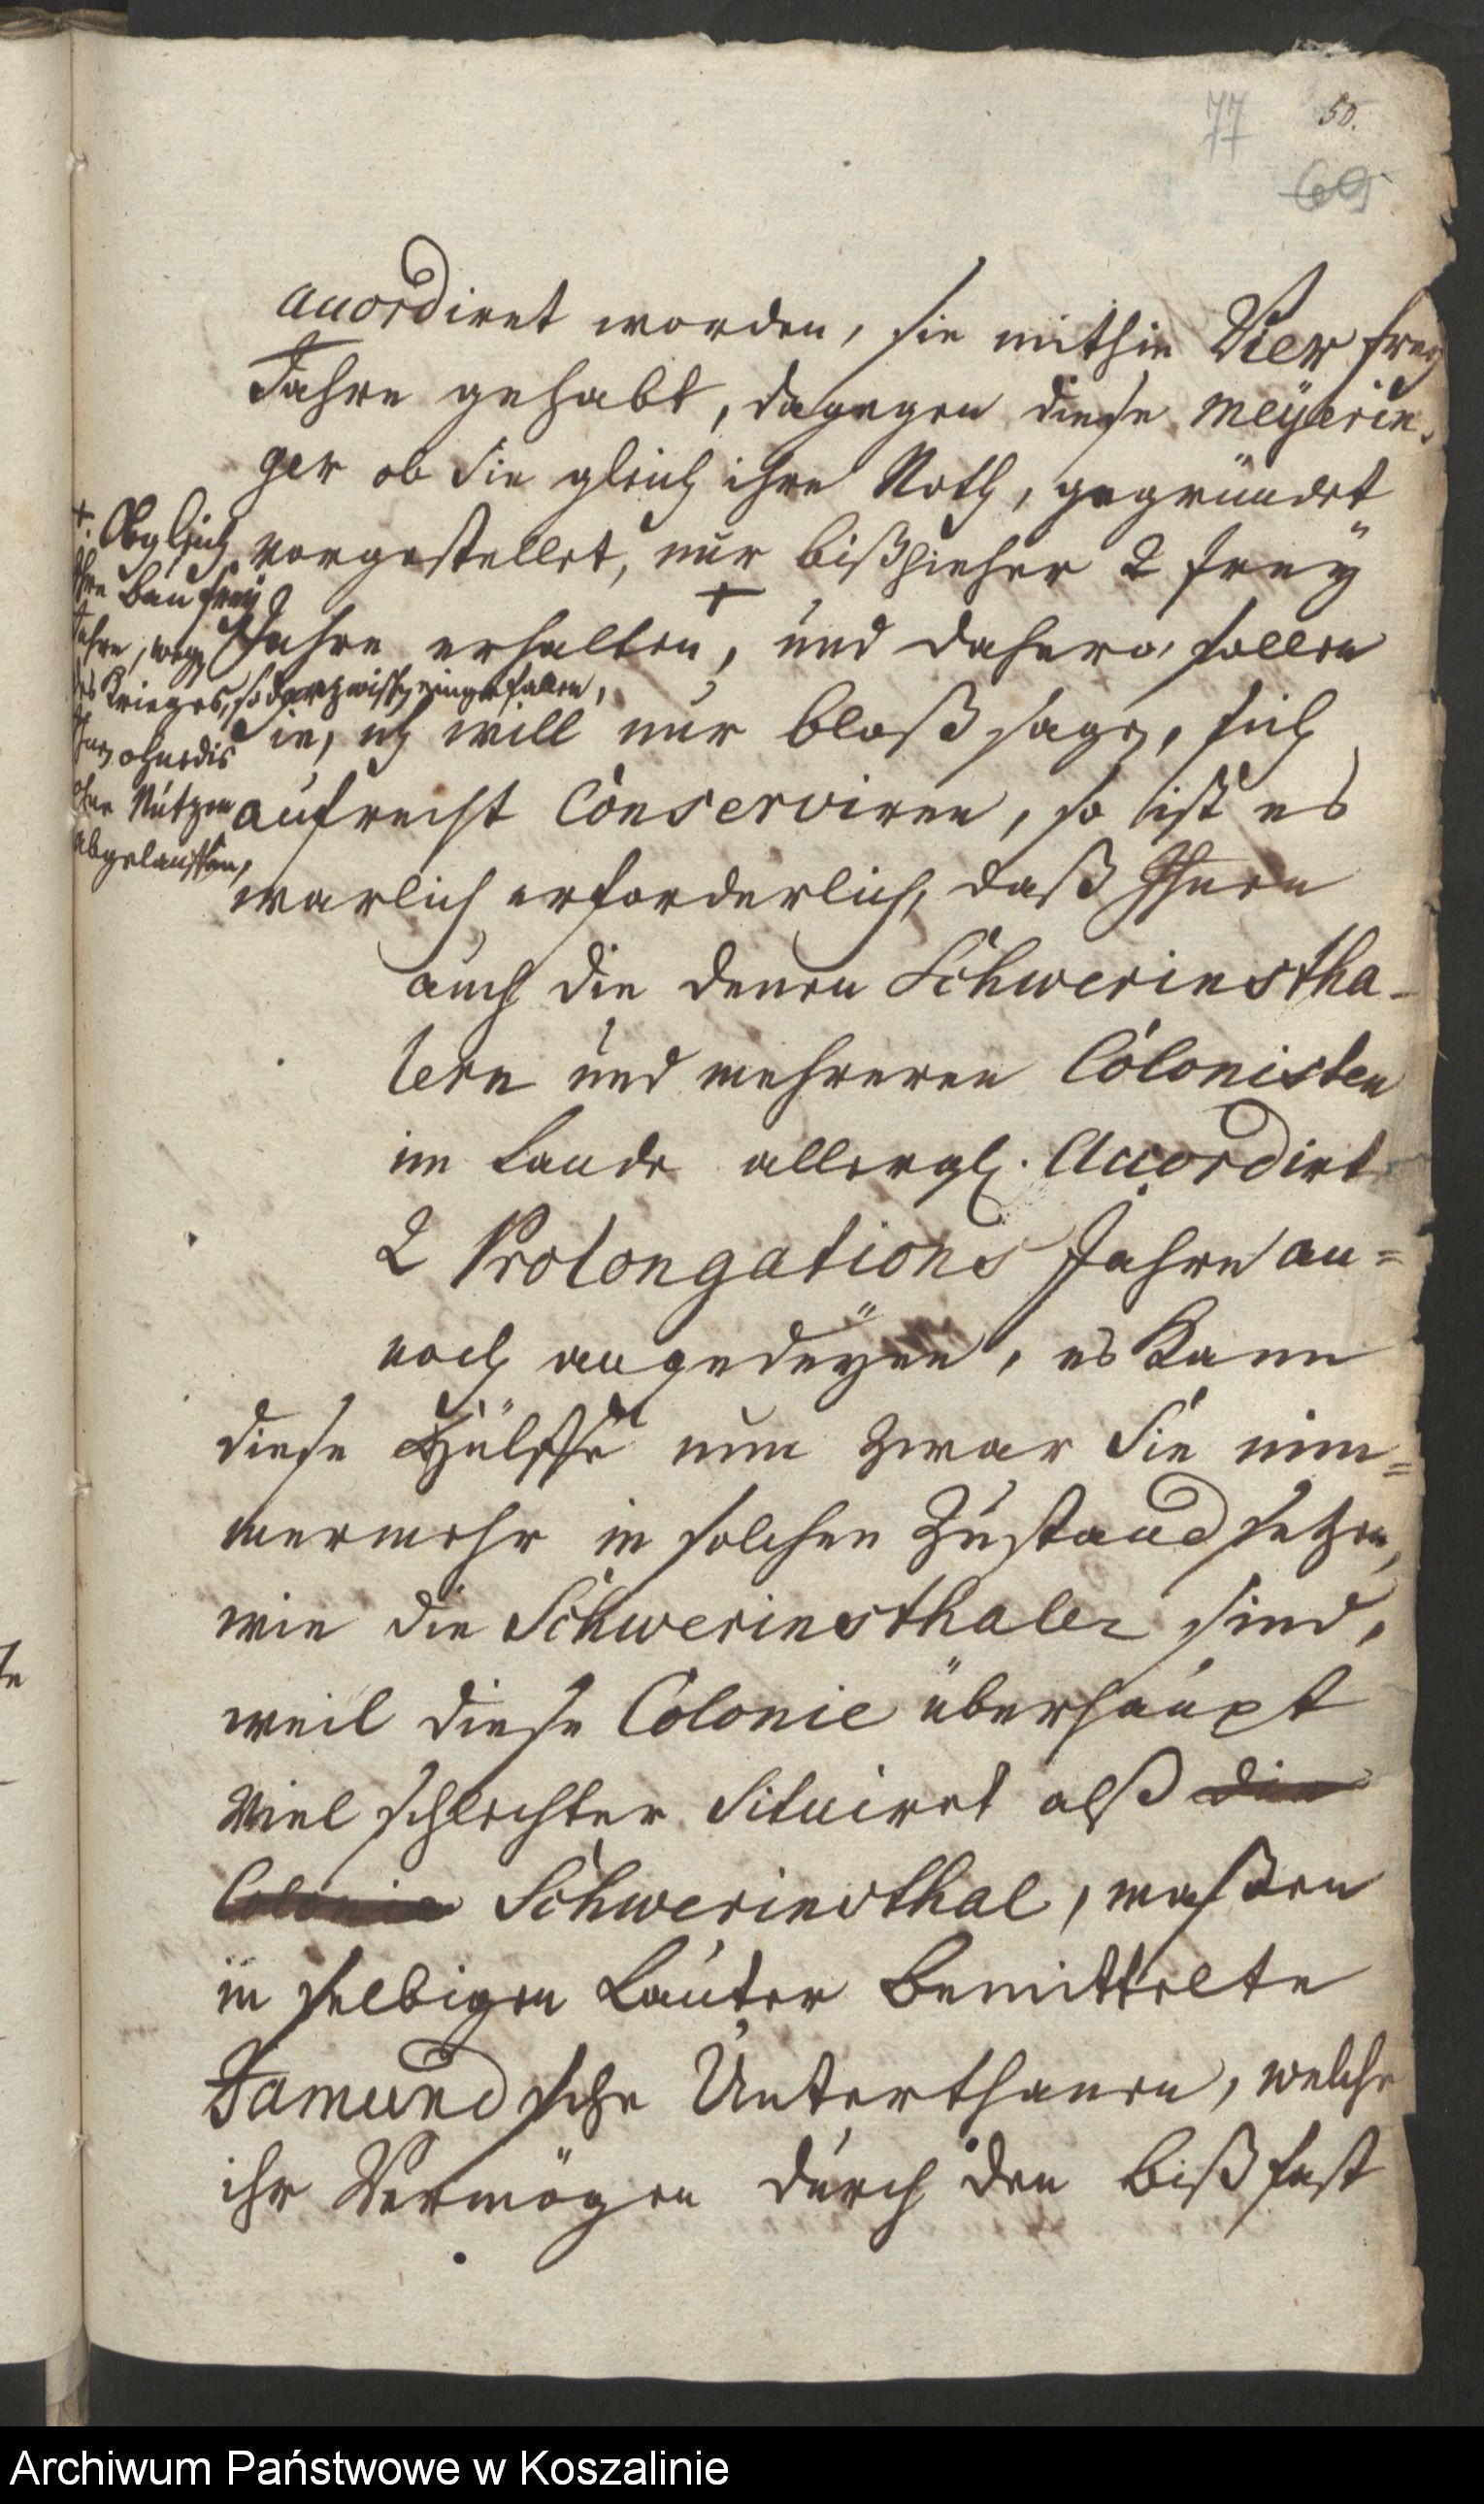 77 50.
69
accordiret worden, sie mithin Vier frey
Jahre gehabt, dagegen diese Meyerin-
ger ob Sie gleich ihre Noth, gegründet
vorgestellet, nur bißhieher 2 frey
Jahre erhalten +, und dahero sollen
Sie, ich will nur bloß sagen, sich
aufrecht Conserviren, so ist es
warlich erforderlich, daß Ihnen
auch die denen Schwerinstha-
lern und mehreren Colonisten
im Lande allergn. Accordirt
2 Prolongations Jahre an=
noch angedeyen, es Kann
diese Hülffe nun zwar Sie nim=
mermehr in solchen Zustand setzen,
wie die Schwerinsthaler sind,
weil diese Colonie überhaupt
viel schlechter Situiret alß die
Colonie Schwerinsthal, maßen
in selbigen Lauter Bemittelte
Jamundsche Unterthanen, welche
ihr Vermögen durch den Biß fast
+. Obgleich
Ihre Bau frey
Jahre, wegen
des Krieges, so darzwischen eingefallen,
Ihnen ohnedis
ohne Nutzen
abgelauffen,
Archiwum Państwowe w Koszalinie